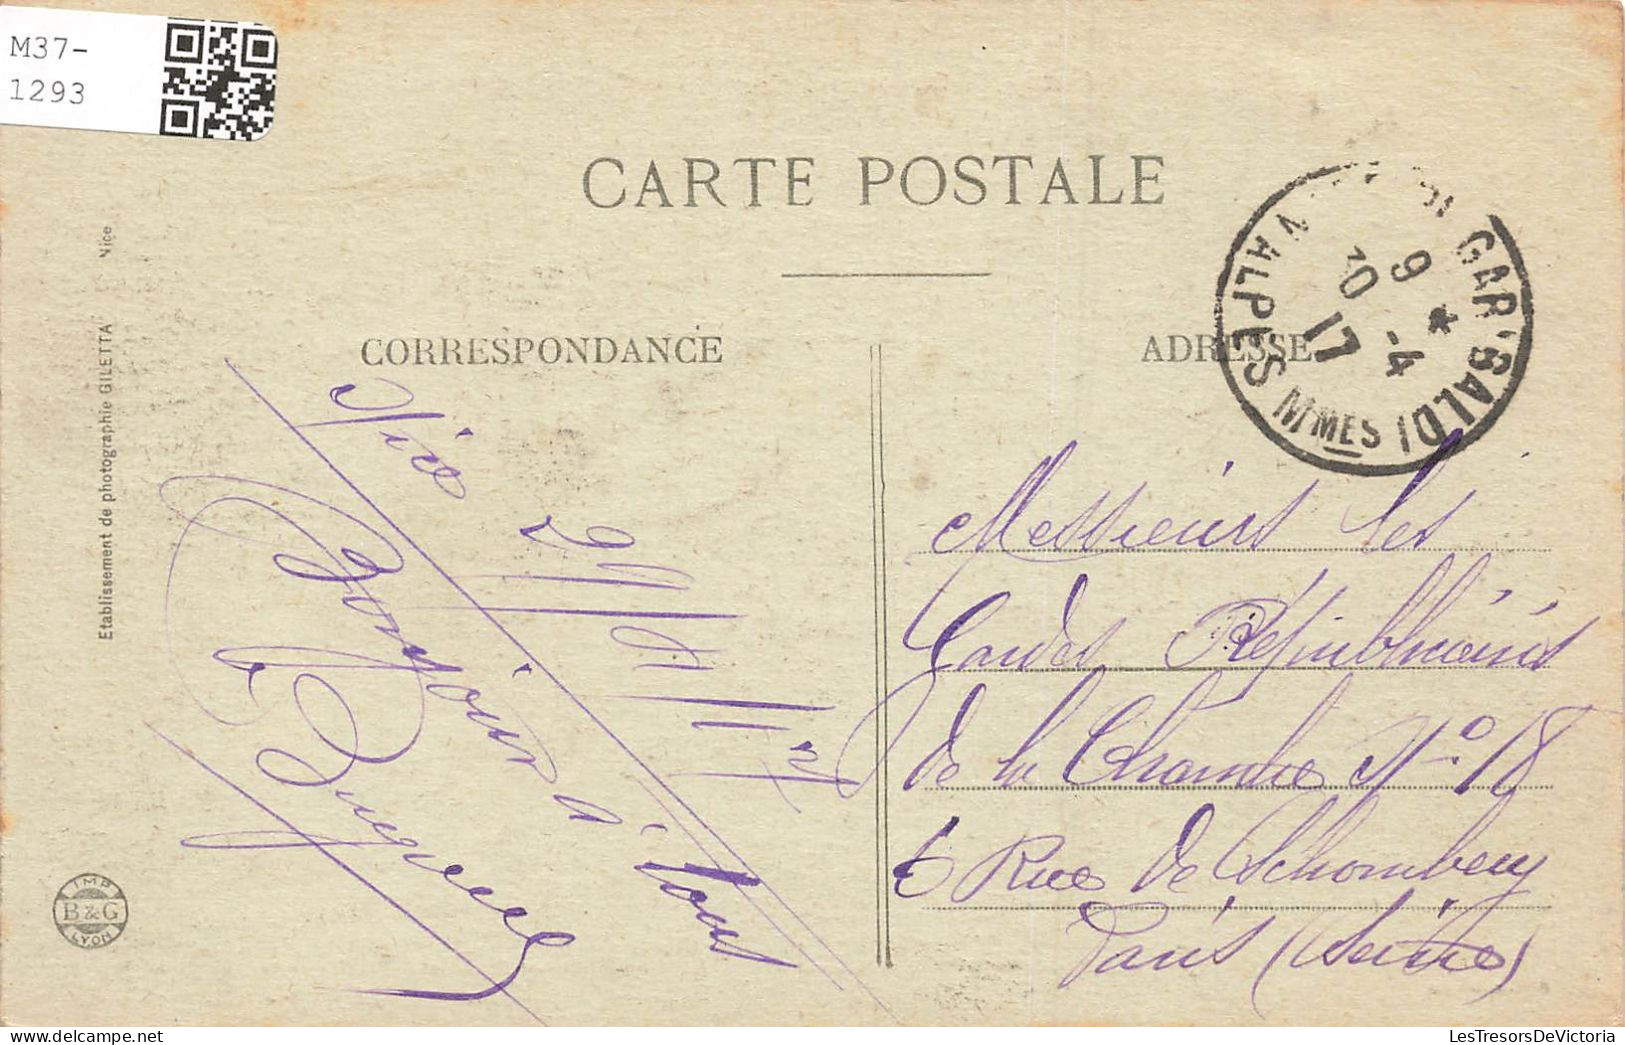 M37-
1293
CARTE POSTALE
CORRESPONDANCE
ADRESSE
GARIBALDI
ALPES MMES
9
30 -4
17
Etablissement de photographie GILETTA Nice
IMP
B & G
LYON
Nice
29/4/17
Bonjour à tous
Messieurs les
Gardes Républicains
de la Chambre No 18
6 Rue de Schomberg
Paris (Seine)
LesTresorsDeVictoria